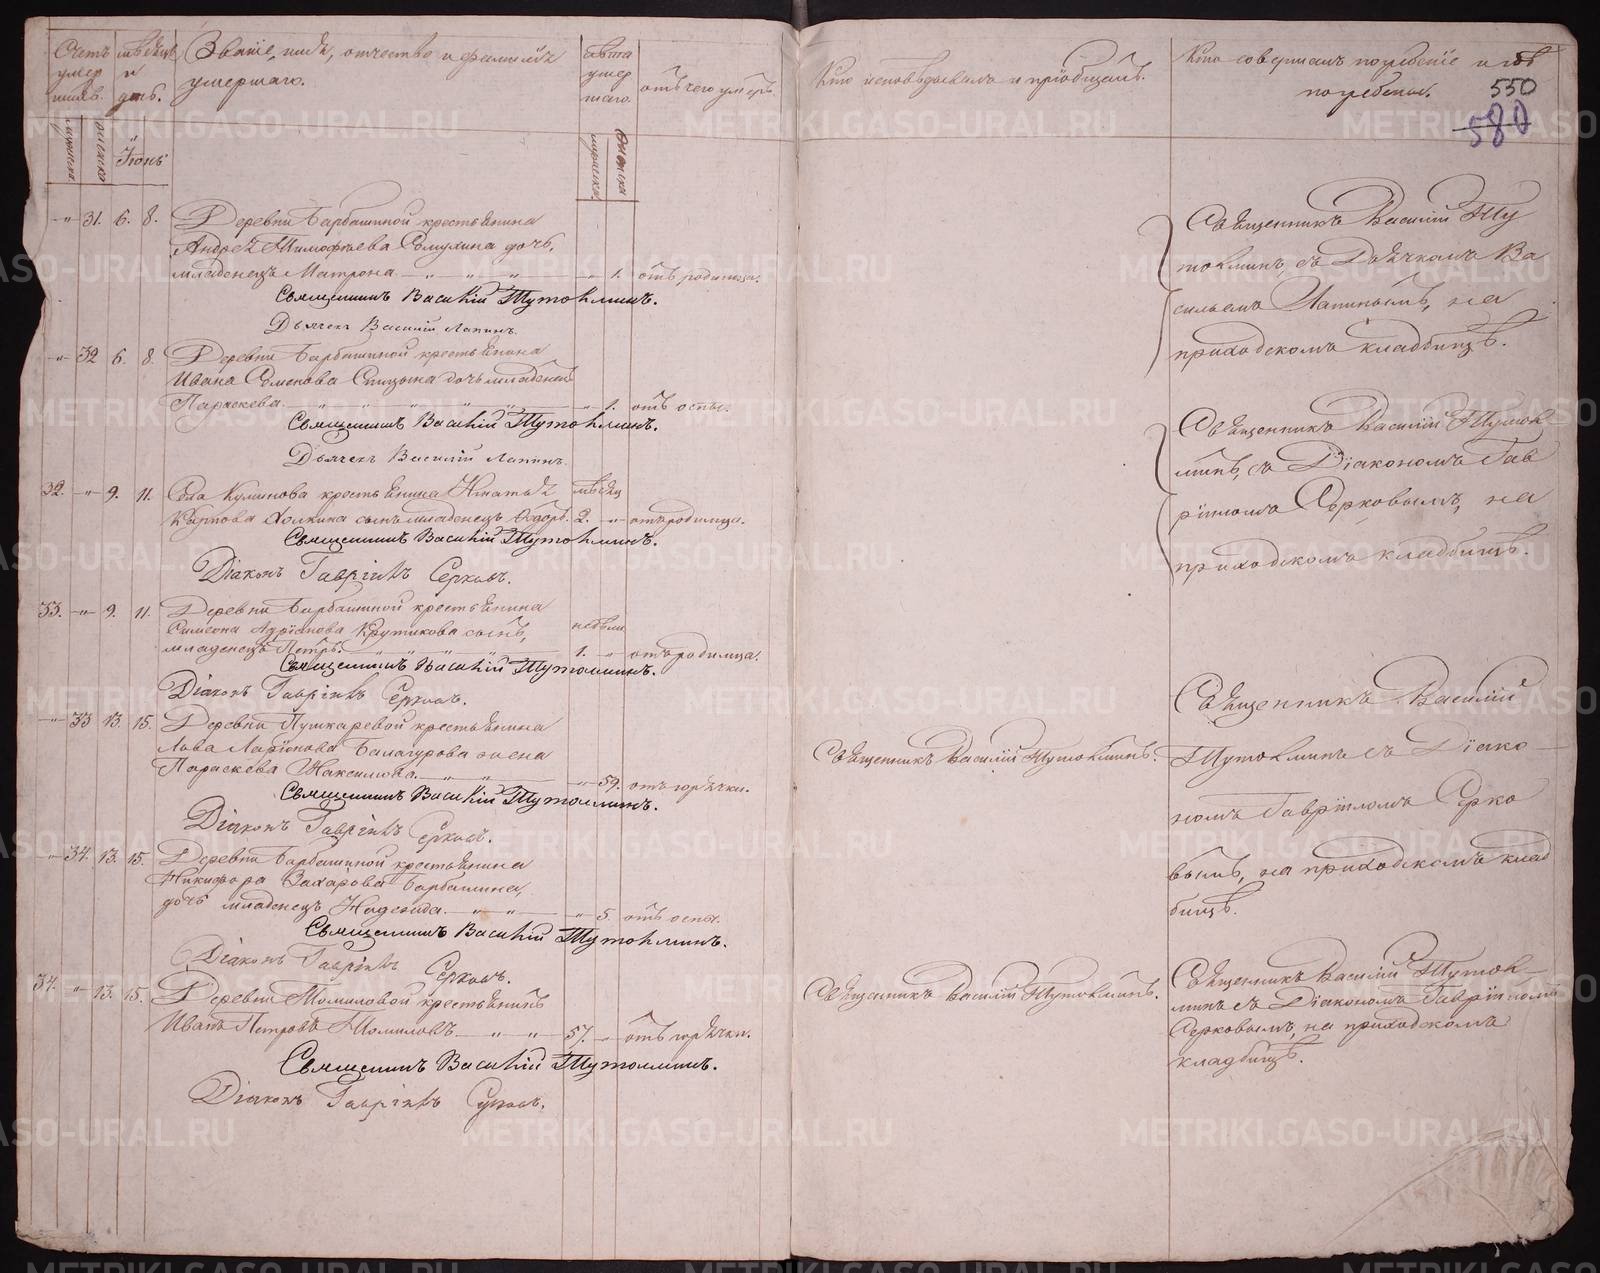 Счетъ умер шихъ.
мѣсяцъ и день.
Званіе, имя, отчество и фамилія
умершаго.
лѣта умер шаго.
отъ чего умеръ.
Кто исповѣдывалъ и пріобщалъ.
Кто совершалъ погребеніе и гдѣ
погребены.
550
580
мужеска
женска
Іюнь
мужеска
женска
-"- 31. 6. 8. Деревни Барбашиной крестьянина
Андрея Тимофѣева дочь,
младенецъ Матрона. " 1. отъ родимца.
Священникъ Василій Тутолминъ.
Дьячекъ Василій Лапинъ.
Священникъ Василій Ту
толминъ, съ Дьячкомъ Ва
сильемъ Лапинымъ, на
приходскомъ кладбищѣ.
-"- 32 6. 8. Деревни Барбашиной крестьянина
Ивана Семенова Спицына дочь младенецъ
Параскева. " 1. отъ оспы.
Священникъ Василій Тутолминъ.
Дьячекъ Василій Лапинъ.
32. -"- 9. 11. Села крестьянина Игнатья мѣсяц
Карпова сынъ младенецъ Ѳедоръ. 2. -"- отъ родимца.
Священникъ Василій Тутолминъ.
Діаконъ Гавріилъ Серковъ.
Священникъ Василій Тутол
минъ, съ Діакономъ Гав
ріиломъ Серковымъ, на
приходскомъ кладбищѣ.
33. -"- 9. 11. Деревни Барбашиной крестьянина
Симеона Адріанова Крутикова сынъ, недѣли
младенецъ Петръ. 1. " отъ родимца.
Священникъ Василій Тутолминъ.
Діаконъ Гавріилъ Серковъ.
-"- 33 13. 15. Деревни Пушкаревой крестьянина
Ларіонова Балагурова жена
Параскева Максимова. " 59. отъ горячки.
Священникъ Василій Тутолминъ.
Священникъ Василій Тутолминъ.
Діаконъ Гавріилъ Серковъ.
" 34. 13. 15. Деревни Барбашиной крестьянина
Никифора Захарова Барбашина,
дочь младенецъ Надежда. " 5. отъ оспы.
Священникъ Василій Тутолминъ.
Діаконъ Гавріилъ Серковъ.
Священникъ Василій
Тутолминъ съ Діако
номъ Гавріиломъ Серко
вымъ, на приходскомъ клад
бищѣ.
34. " 13. 15. Деревни Томиловой крестьянинъ
Иванъ Петровъ Томиловъ 57. " отъ горячки.
Священникъ Василій Тутолминъ.
Священникъ Василій Тутолминъ.
Діаконъ Гавріилъ Серковъ.
Священникъ Василій Тутол
минъ съ Діакономъ Гавріиломъ
Серковымъ, на приходскомъ
кладбищѣ.
METRIKI.GASO-URAL.RU